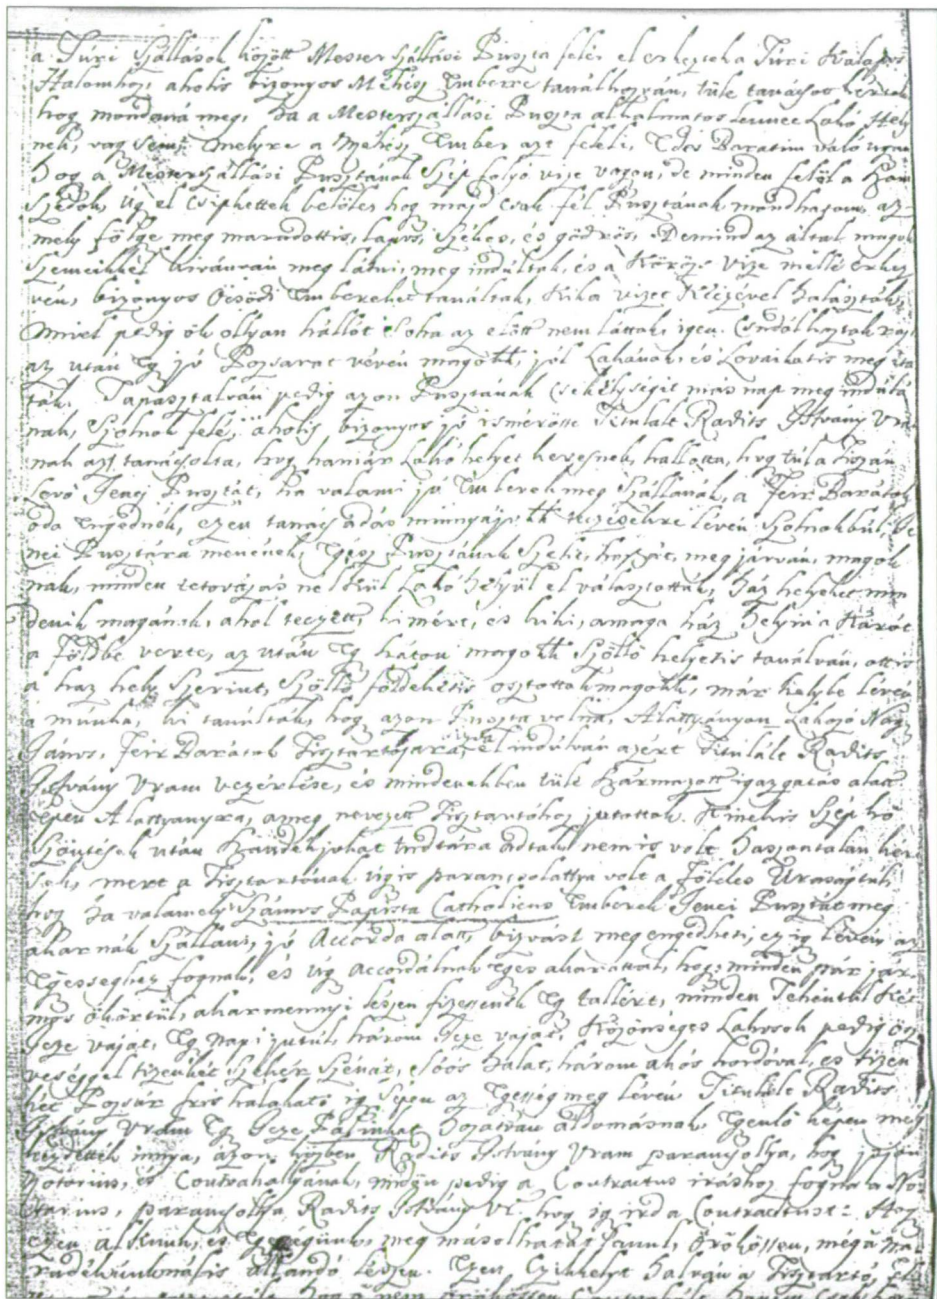 a Túri Szállások között Mester Szállási Puszta felé el érkeztek a Túri
Halomhoz, aholis bizonyos Méhész Emberre tanálkozván, tüle tanácsot kértek
hog mondaná meg, ha a Mesterszállási Puszta alkalmatos lenne Lakó Hely
nek, vag sem; melyre a Méhész Ember azt feleli, Édes Baratim való ugyan
hog a Mesterszállási Pusztának Szép folyó vize vagyon, de minden felöl a Szom
szédok, úg el csipkettek belöle, hog majd csak fél Pusztának mondhatom, az
mely földge meg maradottis, lapos, Székes, és gödrös. Demind az által magok
Szemeikkel kivánván meg látni, meg indúltak, és a Körözs vize mellé érkez
vén, bizonyos Öcsödi Embereket tanáltak, kik a vizet Kéczével halászták,
mivel pedig ök ollyan hállót soha az elött nem láttak, igen Csudálkoztak
az után Eg jó Pozsarat vévén magokk, jól Lakának, és Lovaikatis meg
ták. Tapasztalván pedig azon Pusztának Csekélységit más nap meg indúlá
nak, Szólnok felé, aholis bizonyos jó ismérötte Titulált Radits Istvány Vra
nak azt tanácsolta, hog hamár Lakó helyet keresnek, hallotta, hog túl a Tiszán
Levő Jenei Pusztát, ha valami jó Emberek meg Szállanák, a Feír Barátok
oda engednék, ezen tanács adás minnyájokk tecczésekre lévén Szólnokbúl, Je
nei Pusztára menének, Egész Pusztának Szélit, hoszszát, megjárván, magok
nak, minden tetovázás nélkül Lakó helyül el választották, Ház helyeket min
denik magának, ahol teczett, ki mért, és kiki, amaga ház helyin a Karót
a Földbe verte, az után Eg háton magokk Szöllö helyetis tanálván, ottis
a ház hely Szerint, Szöllö földeketis osztottak magokk, már helybe lévén
a munka, ki tanúlták, hog azon Puszta volna, Alattyányon Lakozó Nag
Janos, Feír Barátok Tisztartójára, el indúlván azért Titulált Radits
Istvány Vram vezérlése, és mindenekben tüle Származott igazgatás alatt
épen Alattyányra, ameg nevezett Tisztartóhoz jutottak. Kinekis Szép kö
szöntések után Szándékjokat tudtára adtak, nem is volt haszontalan kér
sek, mert a Tisztartónak úgis parancsolattya volt a Földes Uraságtúl
hog ha valamely Számos Papista Catholicus Emberek Jenei Pusztát meg
akarnák Szállani, jó Accorda alatt, bizvást meg engedheti, ez ig lévén az
Egésséghez fognak, és úg accordálnak eges akarattal, hog minden pár jár
mos ökörtül, akarmennyi leszen fizessenek Eg tallért, minden Tehéntül két
Icze vajat, Eg napi jutúl három Icze vajat, Közönséges Lakosok pedig ösz
veséggel tizenkét Szekér Szénát, Sóós halat, három akós hordóval, és tizen
két Pozsár friss halakat; ig Szépen az Egesség meg lévén Titulált Radits
Istvány Vram Eg Icze Pálinkát hozatván áldomásnak, Egenlö képen meg
kezdették innya, azon közben Radits Istvány Vram parancsollya, hog jöjön
Notarius, és Contrahállyanak, midőn pedig a Contractus iráshoz fogna a No
tarius, parancsollja Radits Istvány Vr. hog ig ird a Contractust: Hog
ezen alkunk, és Egességünk, meg masolhatatlanul, Örökössen, meg a ma
radékinknális állandó légyen. Ezen Czikkelyt halván a Tisztartó,